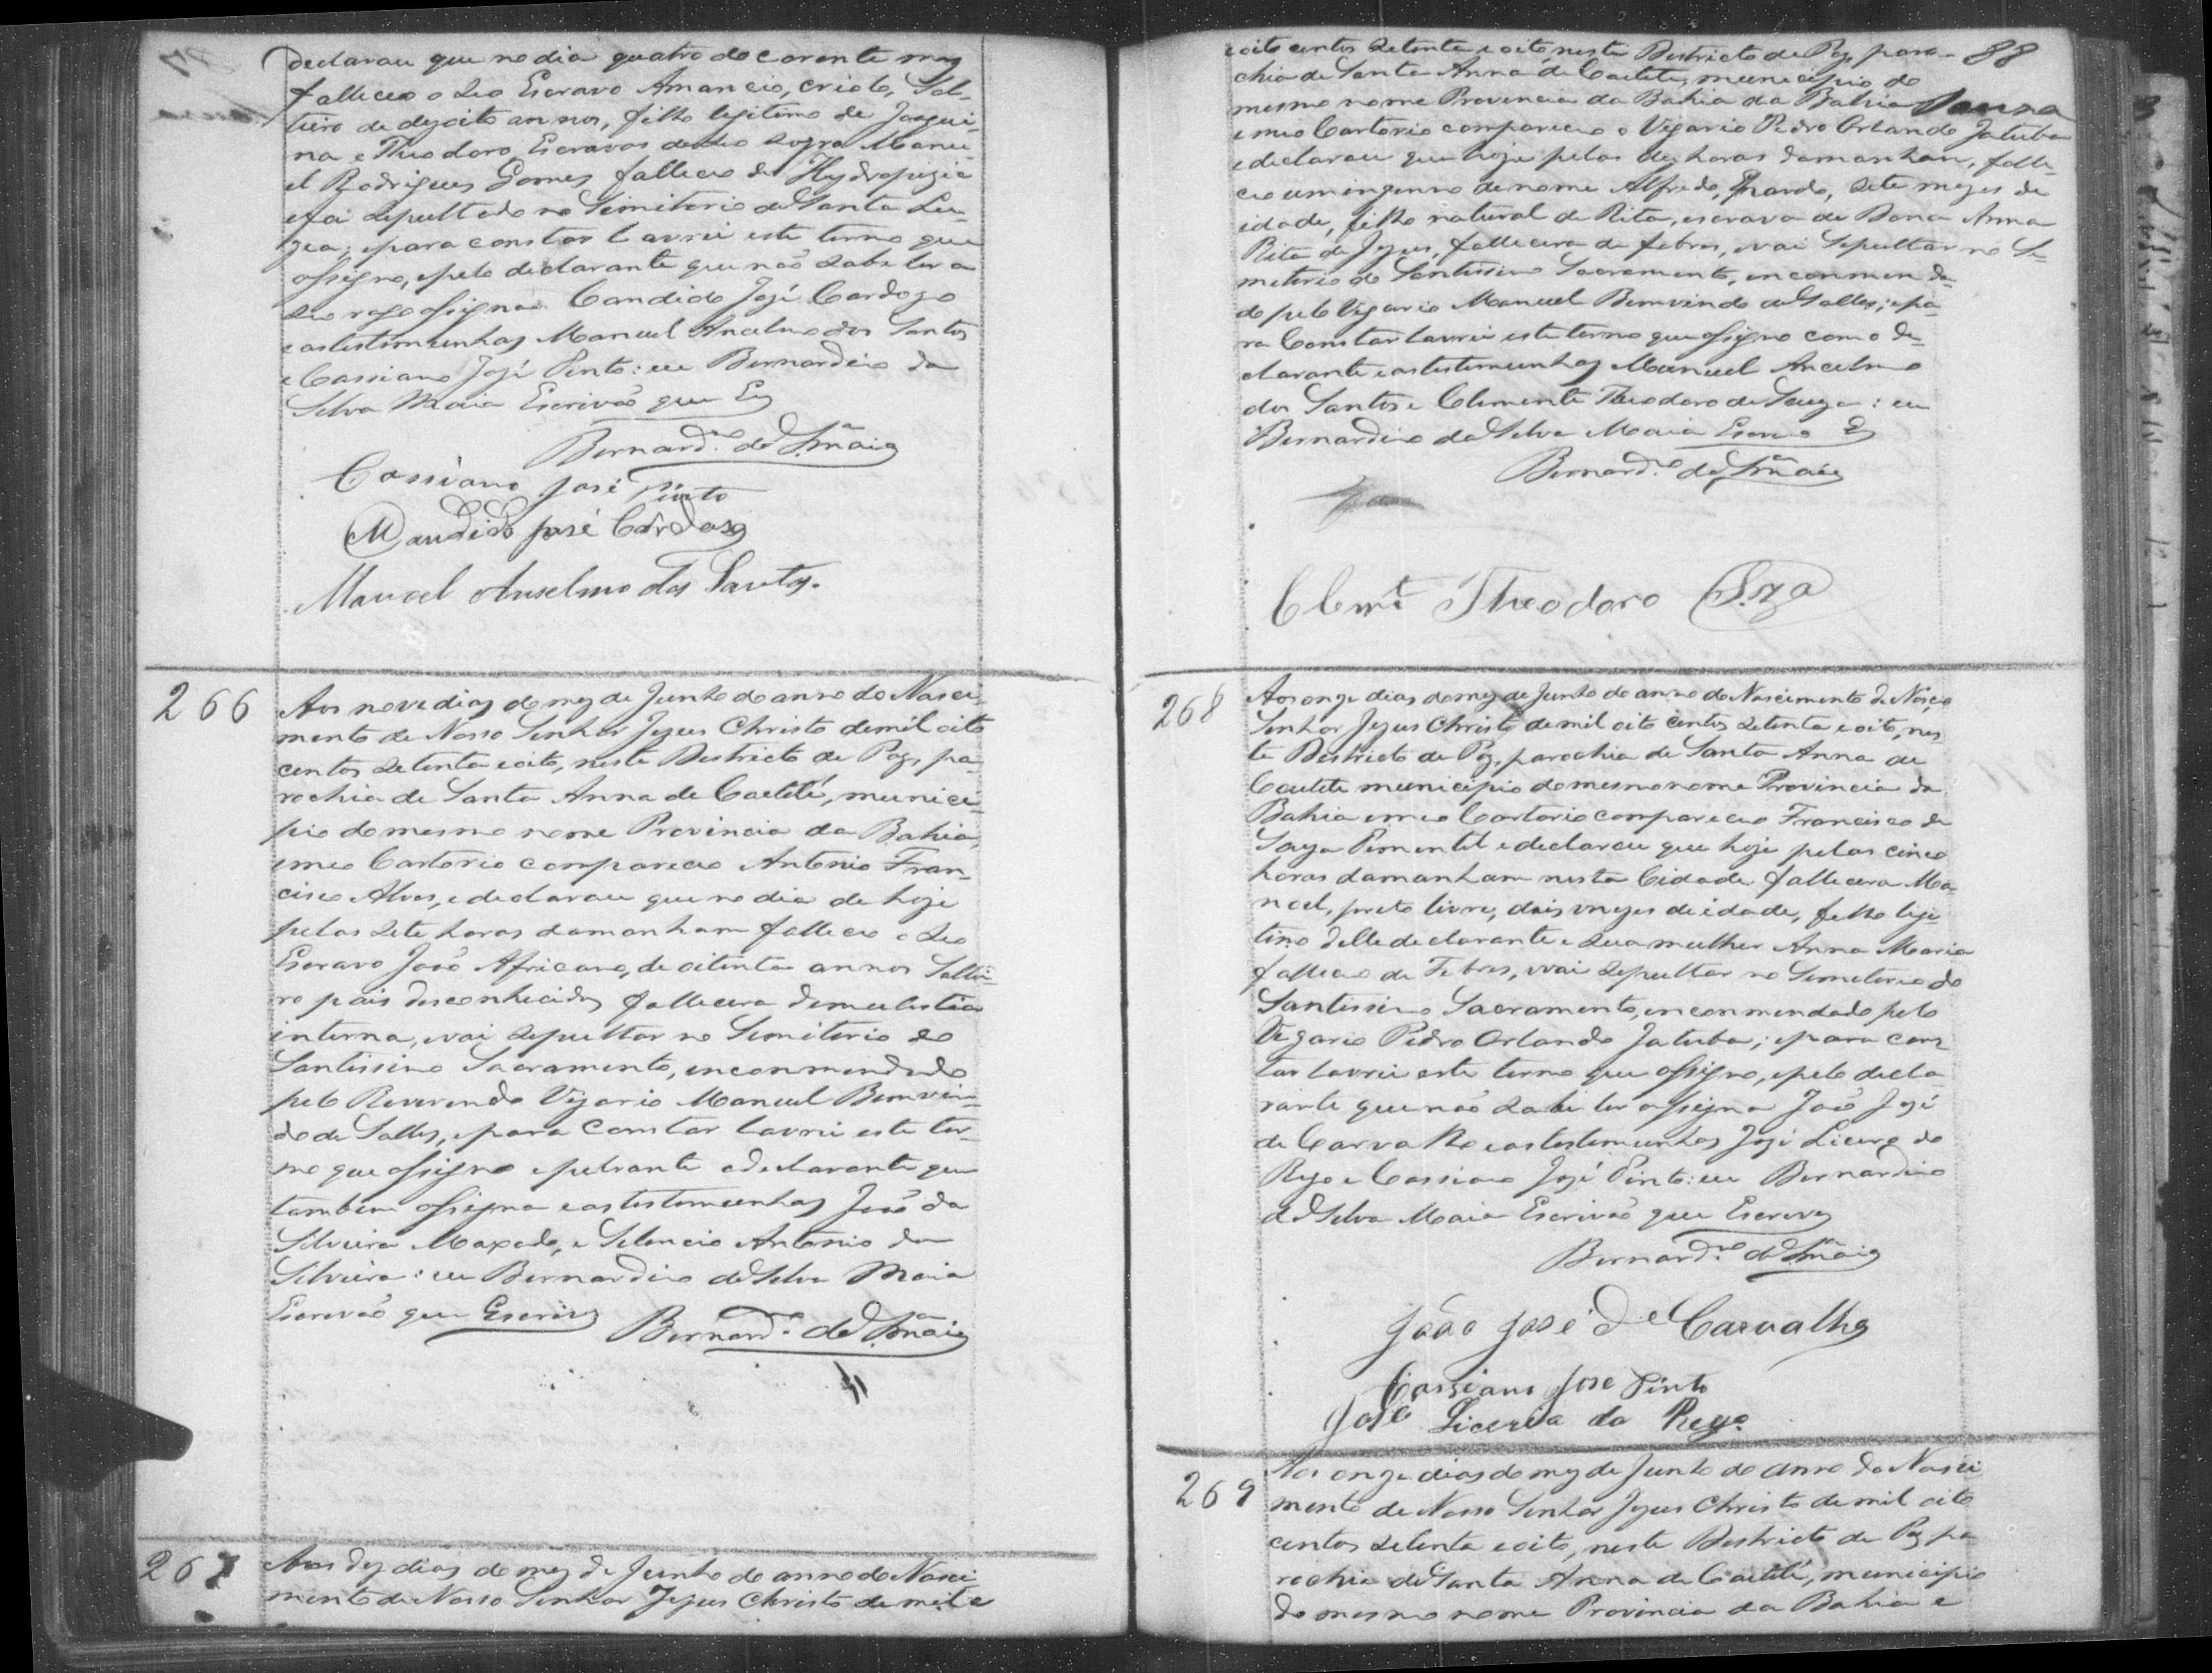 declarou que no dia quatro do corente mez
falleceo o seo Escravo Amancio, criolo, Sol-
teiro de dezoito annos, filho legitimo de Joaqui-
na e Theodoro Escravos de seo sogro Manu-
el Rodrigues Gomes falleceo de Hydropizia
e foi sepultado no Simiterio de Santa Lu-
zia; epara constar lavrei este termo que
assigno, epelo declarante que não sabe ler a
seo rogo assigna Candido José Cardozo
e as testemunhas Manuel Ancelmo dos Santos
e Cassiano José Pinto: eu Bernardino da
Silva Maia Escrivão que Es
Bernard.no da S.a Maia
Cassiano José Pinto
Candido José Cardoso
Manoel Anselmo dos Santos.
266
Aos nove dias do mez de Junho do anno do Nasci-
mento de Nosso Senhor Jezus Christo de mil oito
centos setenta e oito, neste Destricto de Paz, pa-
rochia de Santa Anna de Caetité, munici-
pio do mesmo nome Provincia da Bahia,
em meo Cartorio compareceo Antonio Fran-
cisco Alves, e declarou que no dia de hoje
pelas sete horas da manham falleceo o seo
Escravo João Africano, de oitenta annos Soltei-
ro pais desconhecidos fallecera de mulestia
interna, e vai sepultar no Simiterio do
Santissimo Sacramento, enconmendado
pelo Reverendo Vigario Manuel Bemvin-
do de Salles, e para constar lavrei este ter-
mo que assigno e pelrante o declarante que
tambem assigna e as testemunhas João da
Silveira Maxado, e Selencio Antonio da
Silveira: eu Bernardino da Silva Maia
Escrevão que Escrevy
Bernard.o da S.a Maia
267
Aos dez dias do mez de Junho do anno do Nasci
mento de Nosso Senhor Jezus Christo de mil e
88
e oito centos setenta e oito, neste Destricto de Paz, paro-
chia de Santa Anna de Caetite, municipio do
mesmo nome Provincia da Bahia da Bahia
em meo Cartorio compareceo o Vigario Pedro Orlando Jatuba
e declarou que hoje pelas dez horas da manham, falle-
ceo um ingenuo de nome Alfredo, Pardo, sete mezes de
idade, filho natural de Rita, escrava de Dona Anna
Rita de Jezus, fallecera de febres, e vai sepultar no Si-
miterio do Santissimo Sacramento, enconmenda-
do pelo Vigario Manuel Bemvindo de Salles; epa-
ra Constar lavrei este termo que assigno com o de-
clarante e as testemunhas Manuel Ancelmo
dos Santos e Clemente Theodoro de Souza: eu
Bernardino da Silva Maia Escrivão E
Bernard.o da S.a Maia
Clem.te Theodoro S.za
268
Aos onze dias do mez de Junho do anno do Nascimento de Nosso
Senhor Jezus Christo de mil oito centos setenta e oito, nes
te Destricto de Paz, parochia de Santa Anna de
Caetite municipio do mesmo nome Provincia da
Bahia em meo Cartorio compareceo Francisco de
Souza Pimentel e declarou que hoje pelas cinco
horas da manham nesta Cidade fallecera Ma
noel, preto livre, dois mezes de idade, filho legi
timo delle declarante e sua mulher Anna Maria
falleceo de Febres, e vai sepultar no Simiterio do
Santissimo Sacramento, enconmendado pelo
Vigario Pedro Orlando Jatuba; epara cons
tar lavrei este termo que assigno, epelo decla
rante que não sabe ler assigna João José
de Carvalho e as testemunhas José Licerio do
Rego e Cassiano José Pinto: eu Bernardino
da Silva Maia Escrivão que Escrevy
Bernard.no da S.a Maia
João José de Carvalho
Cassiano Jose Pinto
José Licerio do Rego.
269
Aos onze dias do mez de Junho do anno do Nasci
mento de Nosso Senhor Jezus Christo de mil oito
centos setenta e oito, neste Destricto de Paz pa
rochia de Santa Anna de Caetité, municipio
do mesmo nome Provincia da Bahia e